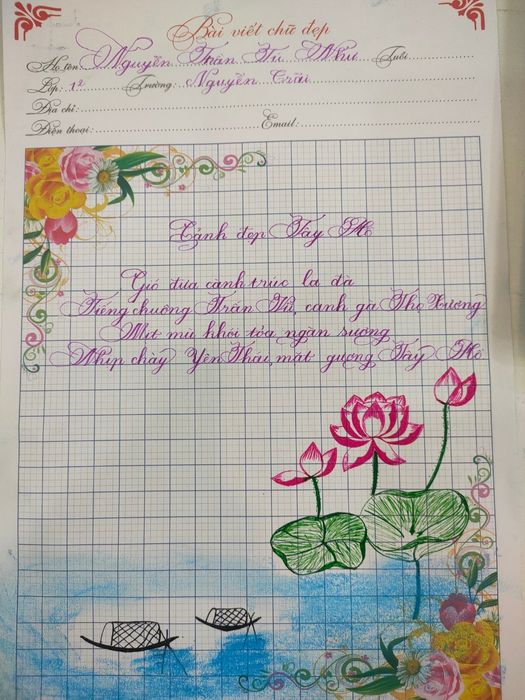 Bài viết chữ đẹp
Họ tên: Nguyễn Trần Tú Như Tuổi
Lớp: 1² Trường: Nguyễn Trãi
Địa chỉ:
Điện thoại: Email:
Cảnh đẹp Tây Hồ
Gió đưa cành trúc la đà
Tiếng chuông Trấn Vũ, canh gà Thọ Xương
Mịt mù khói tỏa ngàn sương
Nhịp chày Yên Thái, mặt gương Tây Hồ